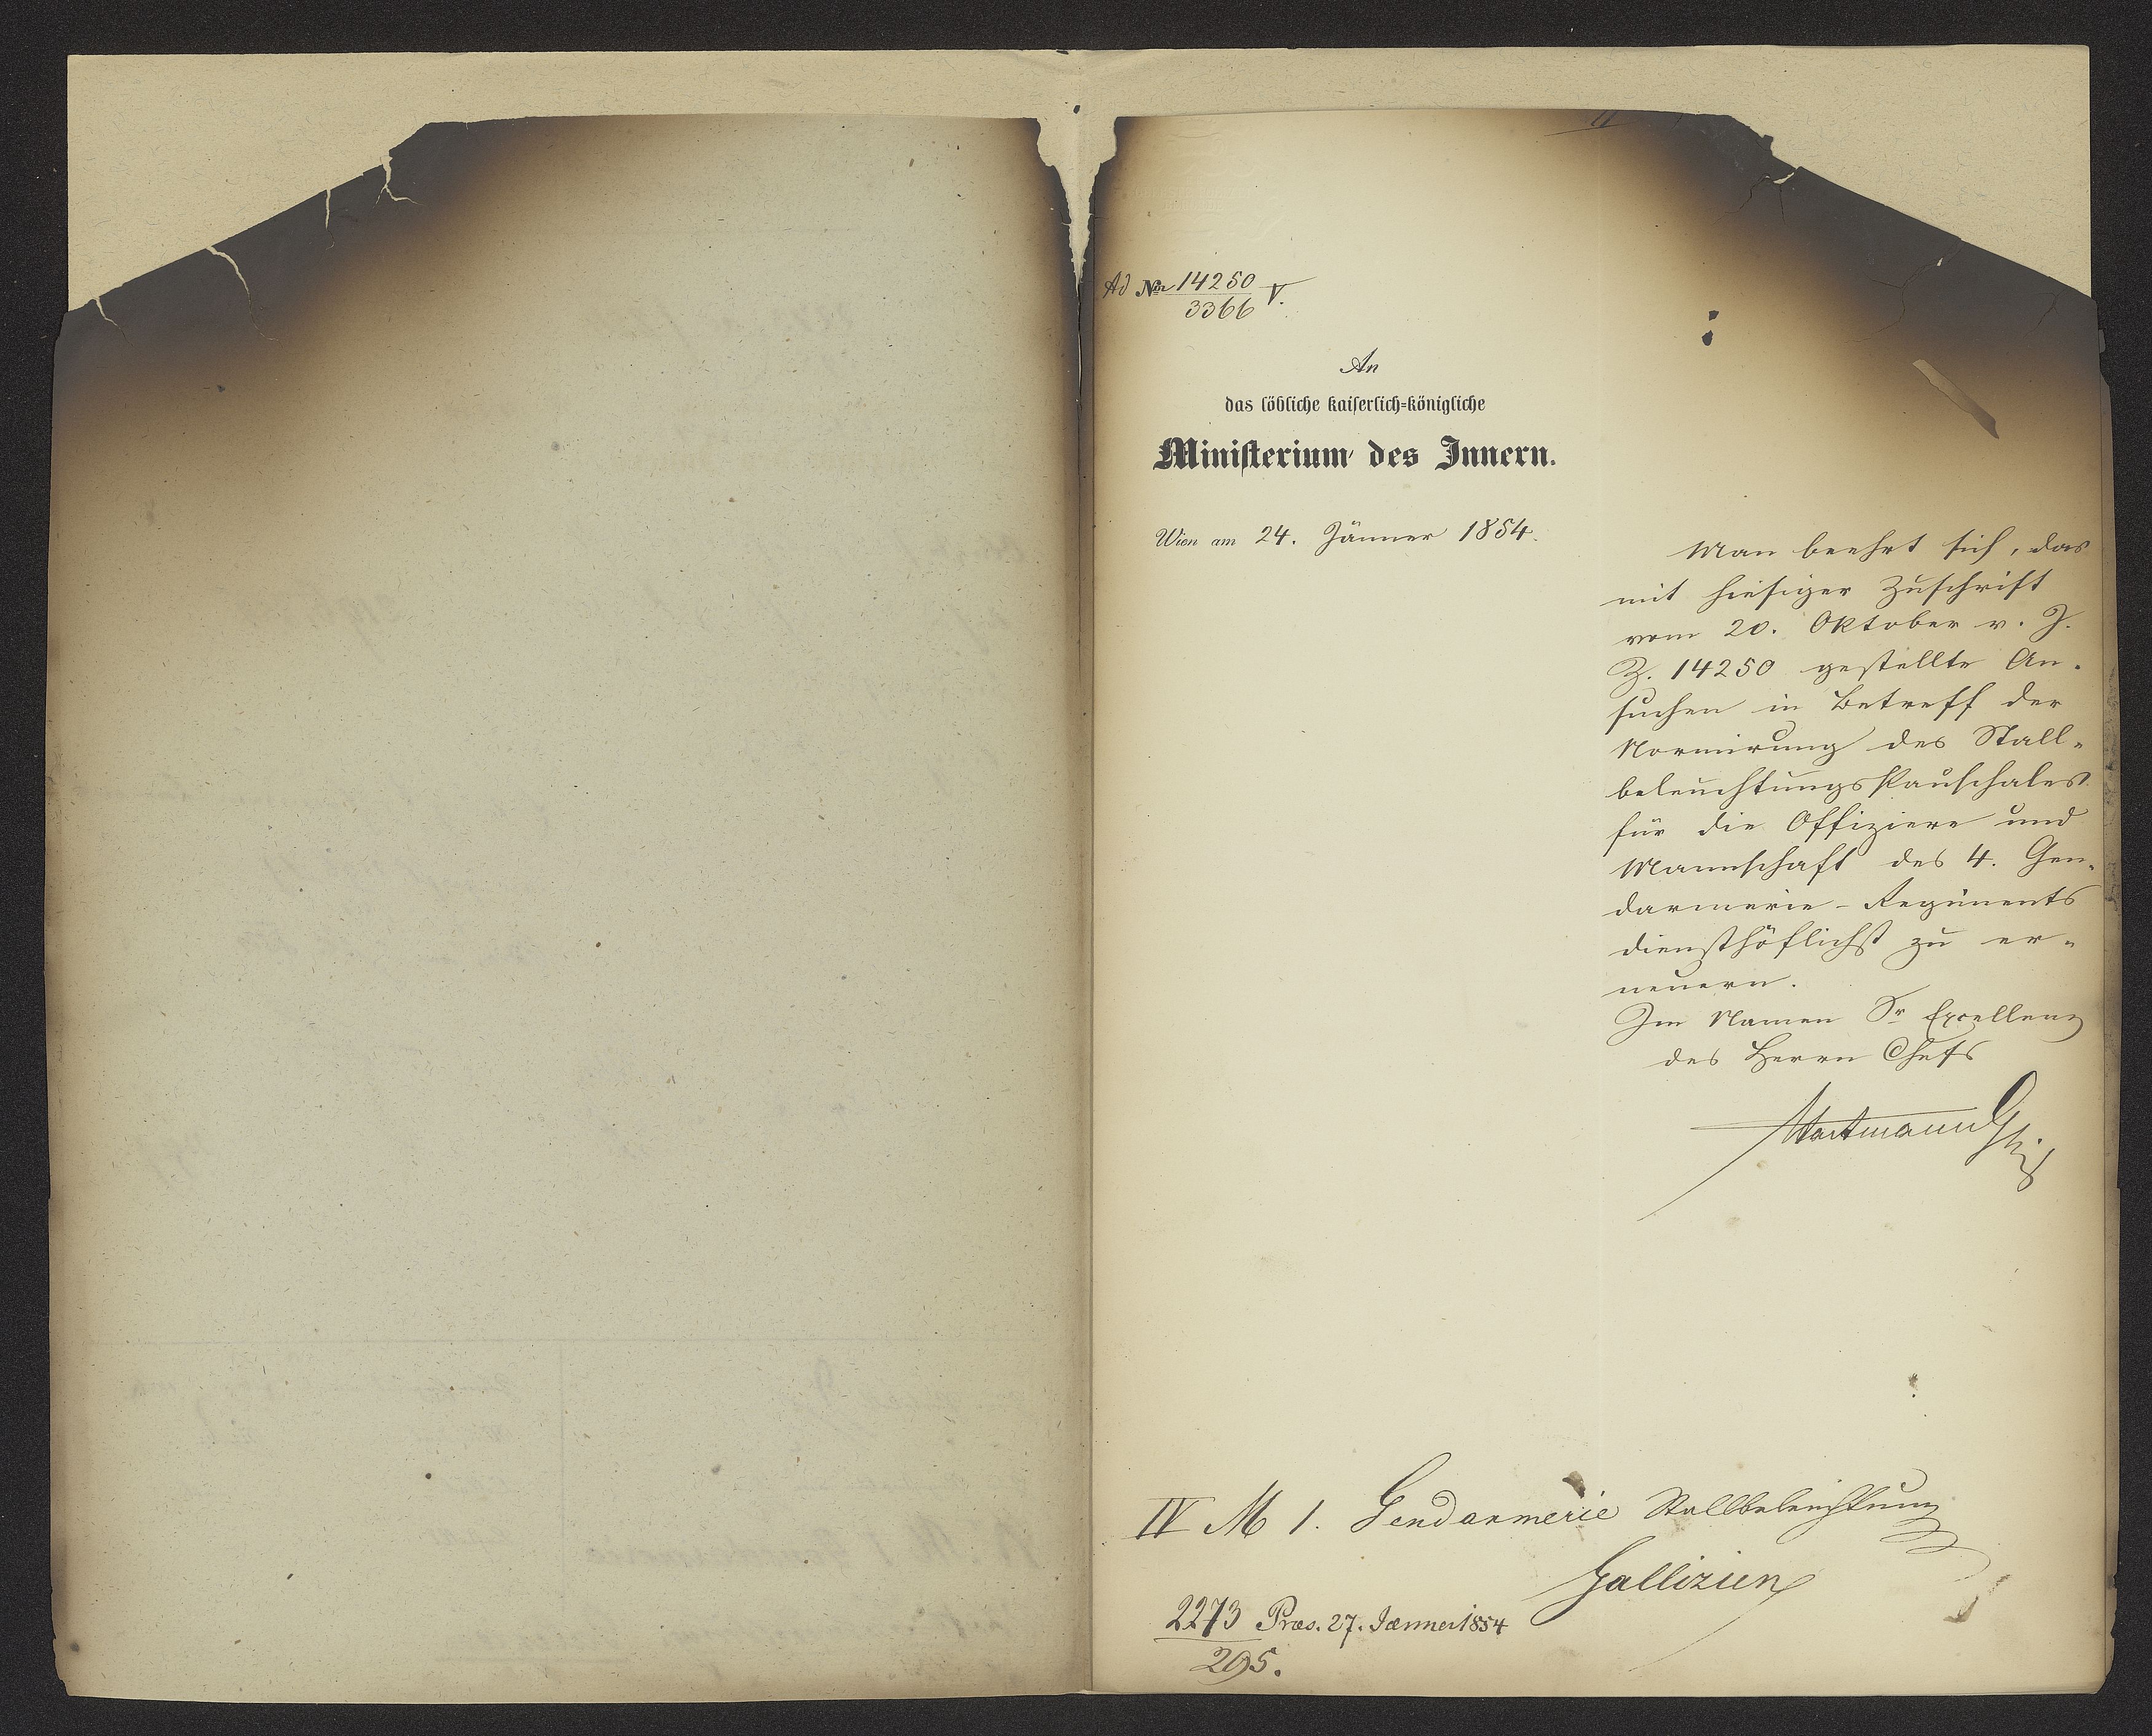 Ad Nro 14250 V.
3366
An
das löbliche kaiserlich-königliche
Ministerium des Innern.
Wien am 24. Jänner 1854.
Man beehrt sich, das
mit hiesiger Zuschrift
vom 20. Oktober v. J.
Z. 14250 gestellte An-
suchen in Betreff der
Normirung des Stall-
beleuchtungs Pauschales
für die Offiziere und
Mannschaft des 4. Gen-
darmerie-Regiments
diensthöflichst zu er-
neuern.
Im Namen Sr Excellenz
des Herrn Chefs
Hartmann
IV M 1. Gendarmerie Stallbeleuchtung
Gallizien
2273 Præs. 27. Jænner 1854
295.